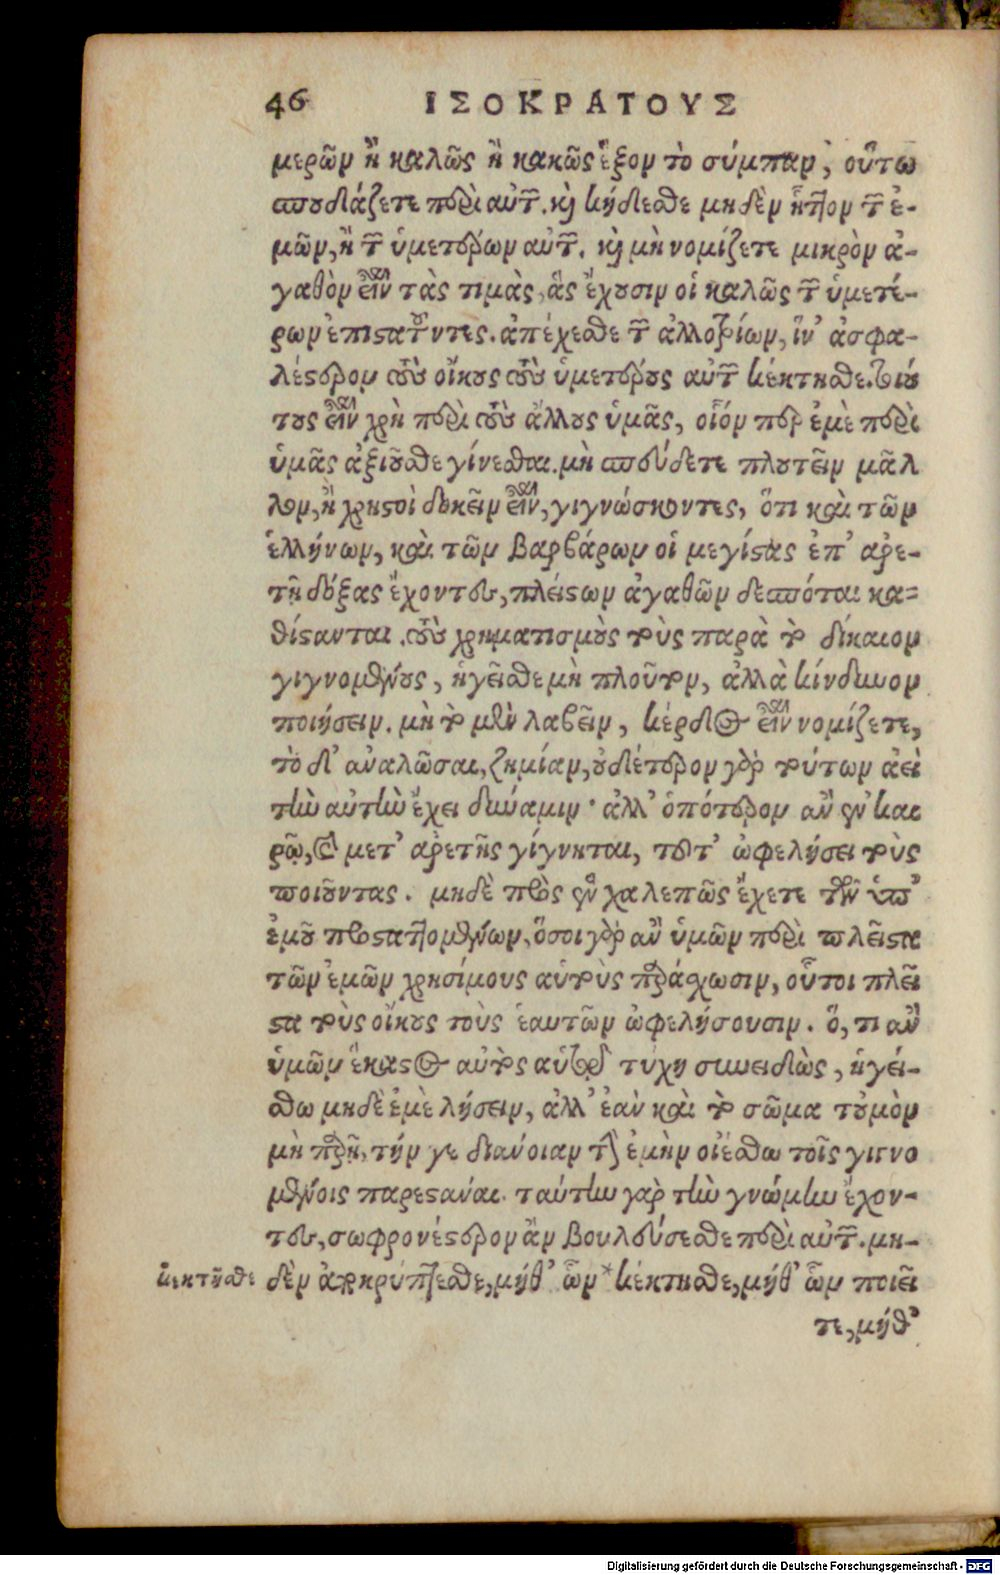 46 ΙΣΟΚΡΑΤΟΥΣ
μερῶν ἢ καλῶς ἢ κακῶς ἕξον τὸ σύμπαν, οὕτω
σπουδάζετε περὶ αὐτῶν. καὶ κήδεσθε μηδὲν ἧττον τῶν ἐ-
μῶν, ἢ τῶν ὑμετέρων αὐτῶν. καὶ μὴ νομίζετε μικρὸν ἀ-
γαθὸν εἶναι τὰς τιμὰς, ἃς ἔχουσιν οἱ καλῶς τῶν ὑμετέ-
ρων ἐπιστατοῦντες. ἀπέχεσθε τῶν ἀλλοτρίων, ἵν' ἀσφα-
λέστερον τοὺς οἴκους τοὺς ὑμετέρους αὐτῶν κέκτησθε. τοιού
τους εἶναι χρὴ περὶ τοὺς ἄλλους ὑμᾶς, οἷόν περ ἐμὲ περὶ
ὑμᾶς ἀξιοῦσθε γίνεσθαι. μὴ σπεύδετε πλουτεῖν μᾶλ
λον, ἢ χρηστοὶ δοκεῖν εἶναι, γιγνώσκοντες, ὅτι καὶ τῶν
ἑλλήνων, καὶ τῶν βαρβάρων οἱ μεγίστας ἐπ' ἀρε-
τῇ δόξας ἔχοντες, πλείστων ἀγαθῶν δεσπόται κα-
θίστανται. τοὺς χρηματισμοὺς τοὺς παρὰ τὸ δίκαιον
γιγνομένους, ἡγεῖσθε μὴ πλοῦτον, ἀλλὰ κίνδυνον
ποιήσειν. μὴ τὸ μὲν λαβεῖν, κέρδος εἶναι νομίζετε,
τὸ δ' ἀναλῶσαι, ζημίαν, οὐδέτερον γὰρ τούτων ἀεὶ
τὴν αὐτὴν ἔχει δύναμιν· ἀλλ' ὁπότερον ἂν ἐν και
ρῷ, καὶ μετ' ἀρετῆς γίγνηται, τοῦτ' ὠφελήσει τοὺς
ποιοῦντας. μηδὲ πρὸς ἓν χαλεπῶς ἔχετε τῶν ὑπ'
ἐμοῦ προσταττομένων, ὅσοι γὰρ ἂν ὑμῶν περὶ πλεῖστα
τῶν ἐμῶν χρησίμους αὑτοὺς παράσχωσιν, οὗτοι πλεῖ
στα τοὺς οἴκους τοὺς ἑαυτῶν ὠφελήσουσιν. ὅ, τι ἂν
ὑμῶν ἕκαστος αὐτὸς αὑτῷ τύχῃ συνειδὼς, ἡγεί-
σθω μηδὲ ἐμὲ λήσειν, ἀλλ' ἐὰν καὶ τὸ σῶμα τοὐμὸν
μὴ παρῇ, τήν γε διάνοιαν τὴν ἐμὴν οἰέσθω τοῖς γιγνο
μένοις παρεστάναι. ταύτην γὰρ τὴν γνώμην ἔχον-
τες, σωφρονέστερον ἂν βουλεύσεσθε περὶ αὐτῶν. μη-
ἐκέκτησθε δὲν ἀποκρύπτεσθε, μήθ' ὧν * κέκτησθε, μήθ' ὧν ποιεῖ
τε, μήθ'
Digitalisierung gefördert durch die Deutsche Forschungsgemeinschaft - DFG